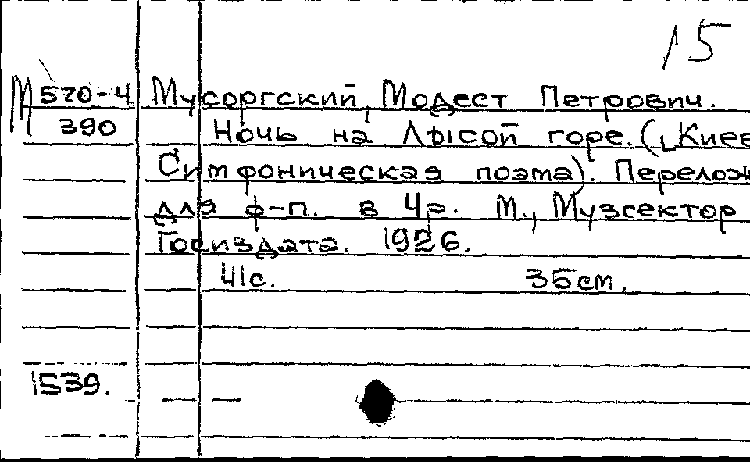 15
М 570-4 Мусоргский, Модест Петрович.
390 Ночь на Лысой горе. (Киев
Симфоническая поэма). Перелож
для ф-п. в 4р. М., Музсектор
Госиздата. 1926.
41с. 35см.
1539.